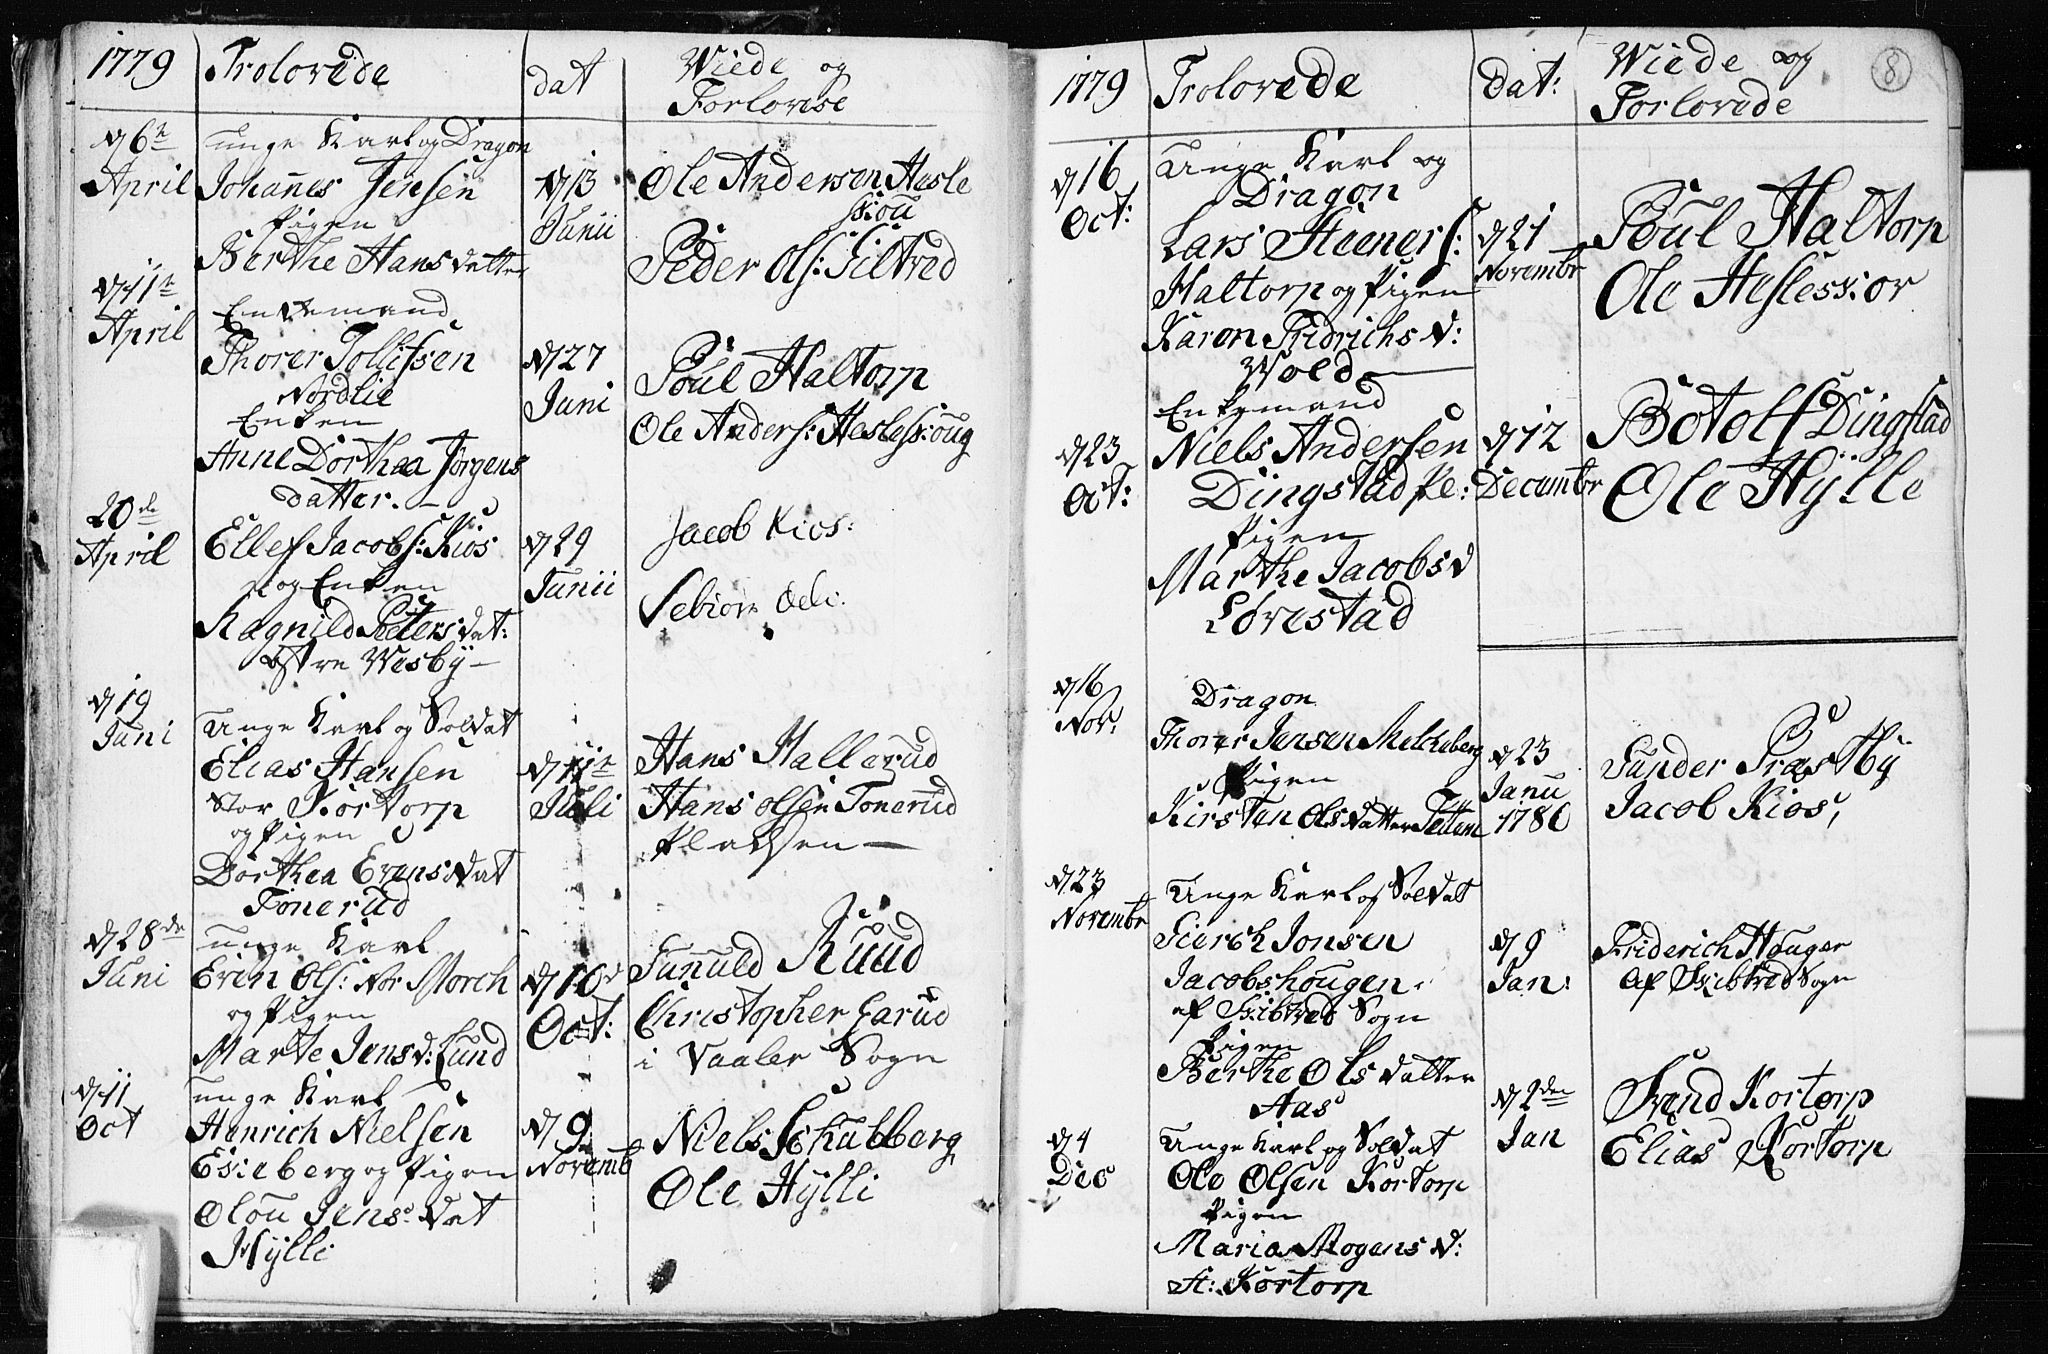 1779
Trolovede
dat
Wiede og
Forlovede
d 6te
April
unge Karl og Dragon
Johannes Jensen
Pigen
Berthe Hansdatter
d 13
Junii
Ole Andersen Hesle
skou
Peder Ols: Siltved
d 11te
April
Enkemand
Thorer Tollefsen
Nordlie
Enken
Anne Dorthea Jørgens
datter.
d 27
Juni
Poul Haltorp
Ole Anders: Hesleskoug
20de
April
Ellef Jacobs: Kios
og Enken
Ragnild Peters dat:
østre Wisbÿ
d 29
Junii
Jacob Kios:
d 19
Juni
Unge Karl og Soldat
Elias Hansen
Stor Kortorp
og Pigen
Dorthea Evens dat
Tonerud
d 11te
Juli
Hans Hallerud
Hans olsen Tonerud
Pladsen
d 28de
Juni
unge Karl
Even Ols: Nor Storch
og Pigen
Marte Jens d: Lund
d 10d
Oct:
Gunuld Ruud
Christopher Garud
i Vaaler Sogn
d 11
Oct
unge Karl
Henrich Nielsen
Eskeberg og Pigen
Olou Jens: dat
Hylli
d 9
Novemb
Niels Schubberg
Ole Hylli
8
1779
Trolovede
dat:
Wiede og
Forlovede
d 16
Oct:
Unge Karl og
Dragon
Lars Steeners:
Haltorp og Pigen
Karen Fridrichs d:
Wold
d 21
Novembr
Poul Haltorp
Ole Hesleskov
d 23
Oct:
Enkemand
Niels Andersen
Dingstad
Pigen
Marthe Jacobs d
Lövestad
d 12
Decembr
Botolf Dingstad
Ole Hÿlle
d 16
Nov:
Dragon
Thorer Jensen Melcheberg
Pigen
Kirsten Olsdatter
d 23
Janu
1780
Gunder Præstby
Jacob Kios,
d 23
Novembr
Unge Karl og Soldat
Siersch Jonsen
Jacobshougen
af Skibtved Sogn
Pigen
Berthe Ols datter
Aas
d 9
Jan:
Friderich Houger
af Skibtved Sogn
d 4
Dec
Unge Karl og Soldat
Ole Olsen Kortorp
Pigen
Maria Mogens d:
St: Kortorp
d 2den
Jan
Svend Kortorp
Elias Kortorp